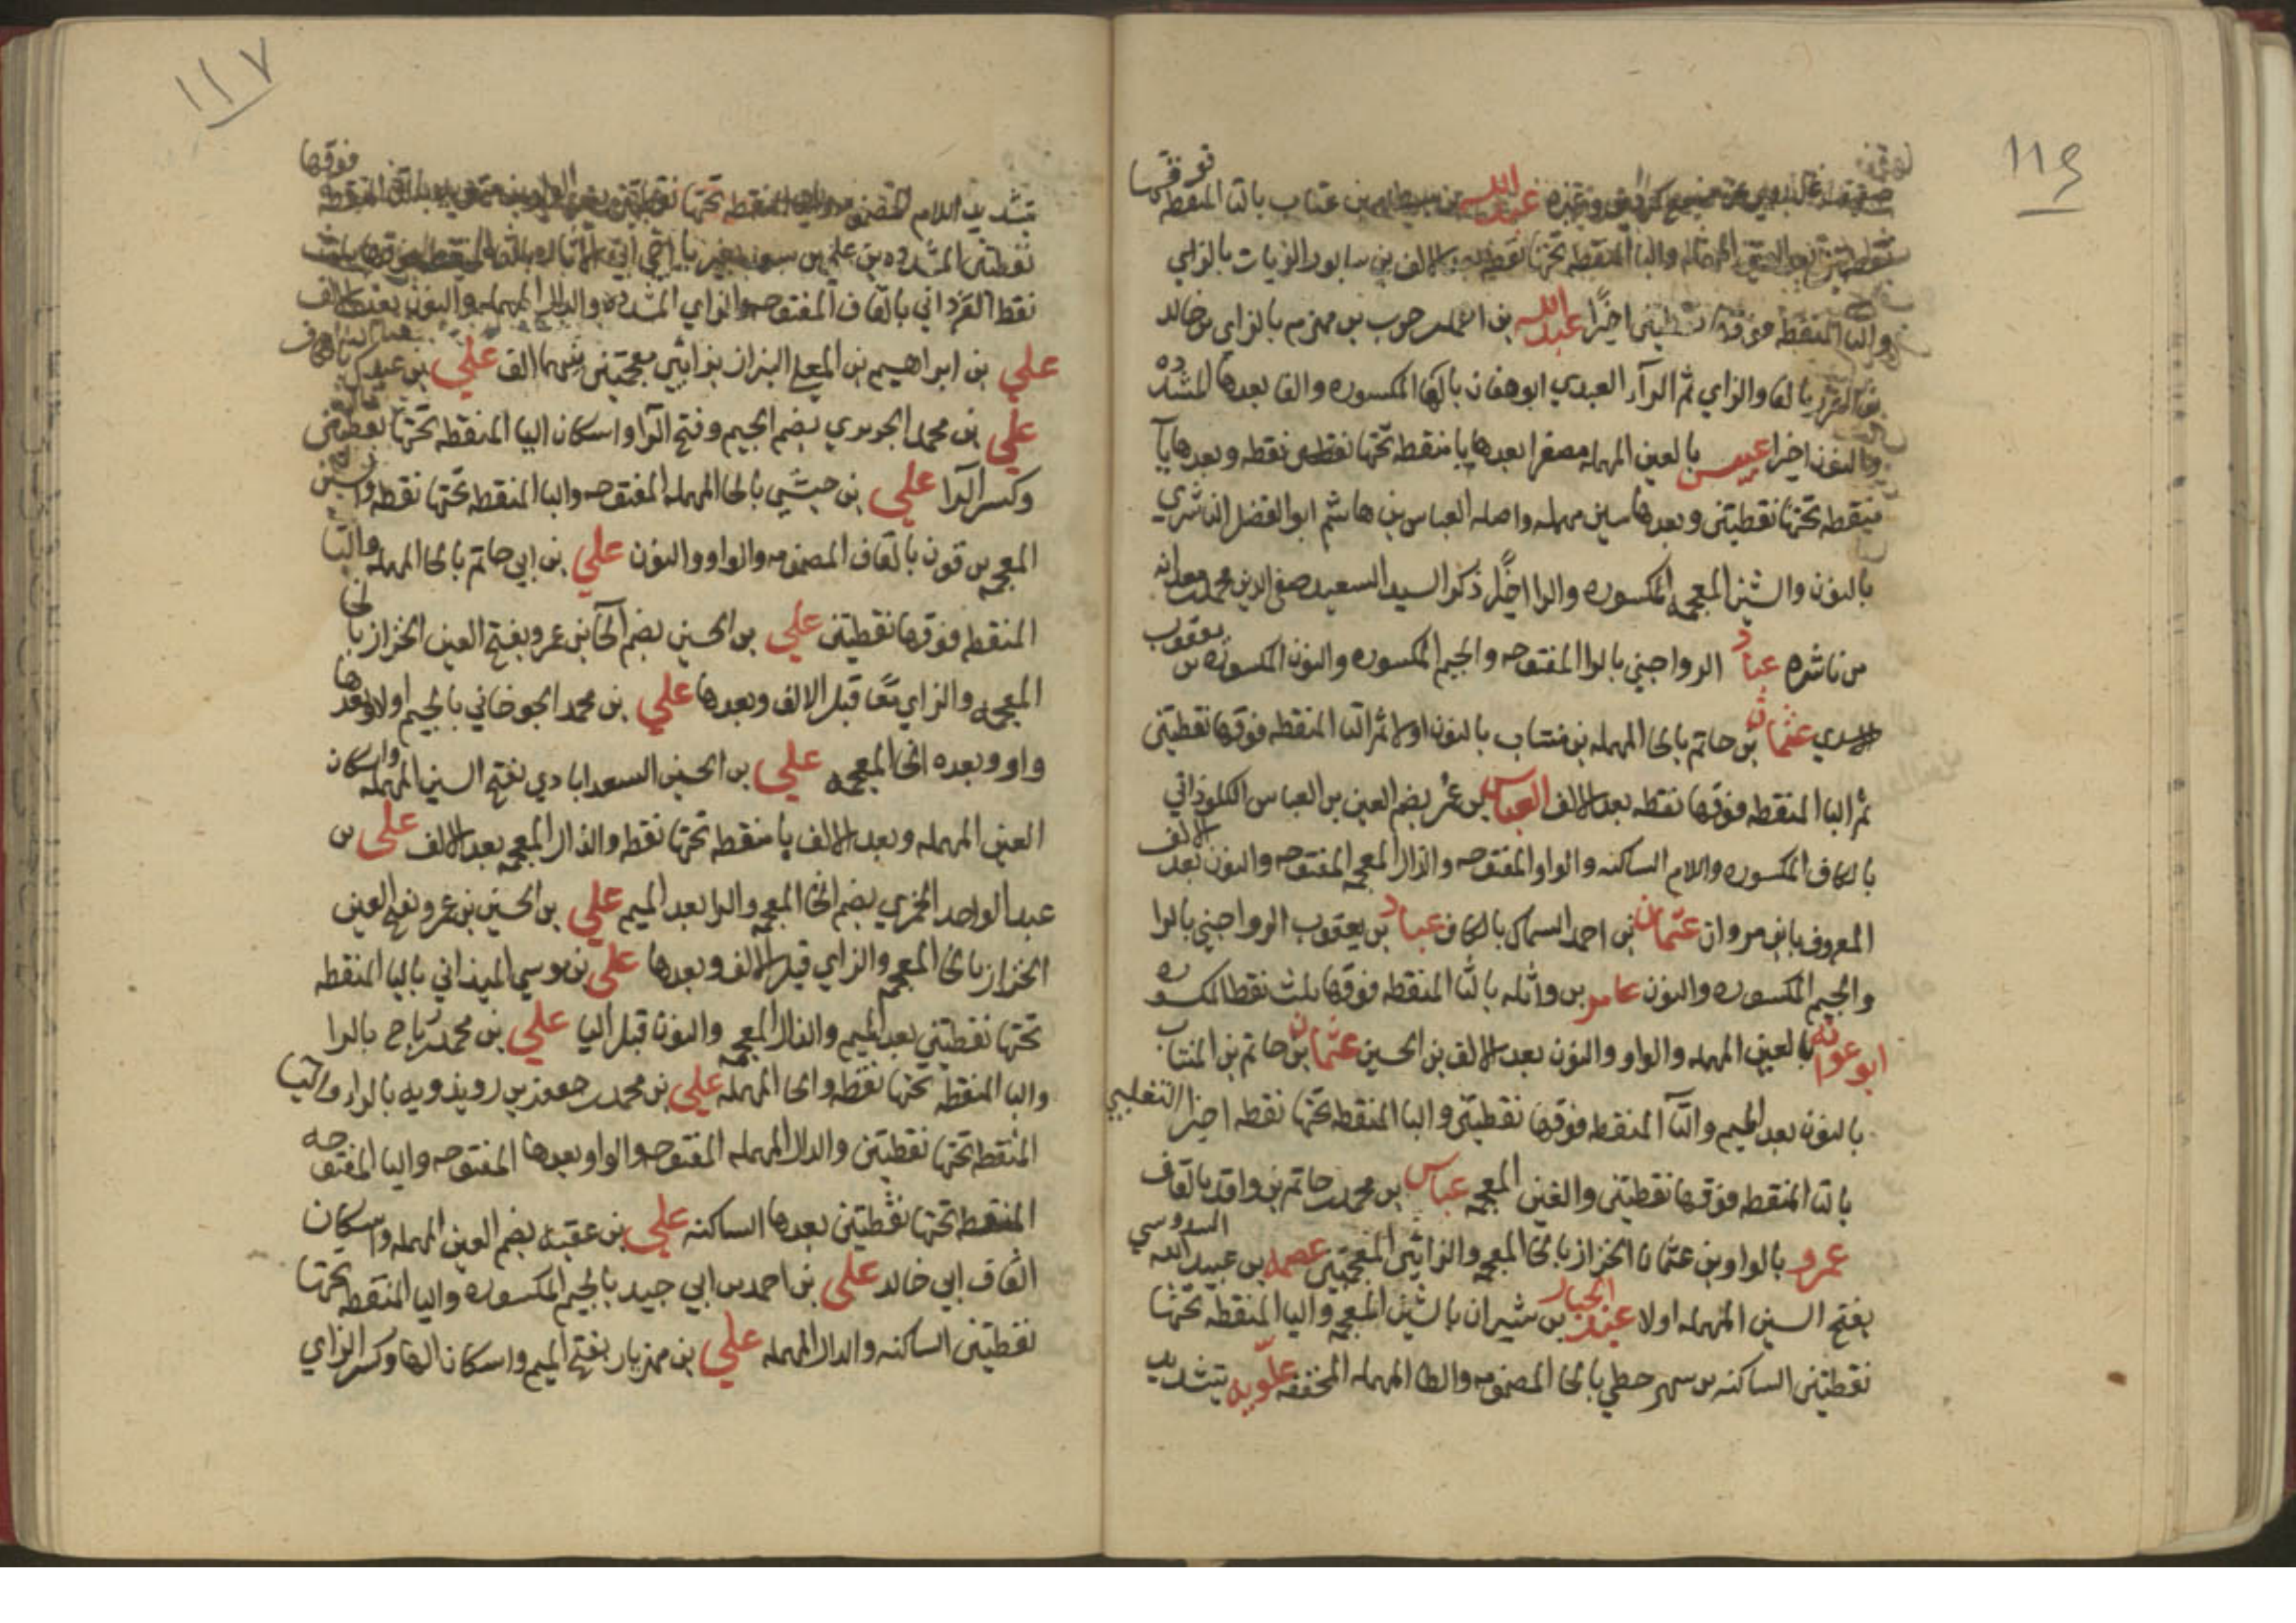 ١١٦
فوقها
عبد الله بن بسطام بن عتاب بالتا المنقطه
والبا المنقطه تحتها نقطه بعد الالف بن سابور الزيات بالزاي
والتا المنقطه فوقها نقطتين اخيرًا عبد الله بن احمد بن حرب بن مهزم بالزاي بن خالد
بن الفزر بالفا والزاي ثم الرآء العبدي ابو هفان بالها المكسوره والفا بعدها المشدده
والنون اخيرا عبيس بالعين المهمله مصغرا بعدها با منقطه تحتها نقطه وبعدها يآ
منقطه تحتها نقطتين وبعدها سين مهمله واصله العباس بن هاشم ابو الفضل الناشري
بالنون والشين المعجمه المكسوره والرا اخيرًا ذكر السيد السعيد صفي الدين محمد بن معد انه
من ناشره عباد الرواجني بالرا المفتوحه والجيم المكسوره والنون المكسوره بن يعقوب
الاسدي عثمان بن حاتم بالحا المهمله بن منتاب بالنون اولا ثم التا المنقطه فوقها نقطتين
ثم البا المنقطه فوقها نقطه بعد الالف العباس بن عمر بضم العين بن العباس الكلوذاني
بالكاف المكسوره واللام الساكنه والواو المفتوحه والذال المعجمه المفتوحه والنون بعد الالف
المعروف بابن مروان عثمان بن احمد السماك بالكاف عباد بن يعقوب الرواجني بالرا
والجيم المكسوره والنون عامر بن واثله بالثا المنقطه فوقها ثلث نقط المكسوره
ابو عوانه بالعين المهمله والواو والنون بعد الالف بن الحسين عثمان بن حاتم بن المنتاب
بالنون بعد الميم والتآ المنقطه فوقها نقطتين والبا المنقطه تحتها نقطه اخيرا التغلبي
بالتا المنقطه فوقها نقطتين والغين المعجمه عباس بن محمد بن حاتم بن واقد بالقاف
عمرو بالواو بن عثمان الخزاز بالخا المعجمه والزائين المعجمتين عصمه بن عبيد الله السدوسي
بفتح السين المهمله اولا عبد الجبار بن شيران بالشين المعجمه واليا المنقطه تحتها
نقطتين الساكنه بن سهر حطي بالحا المضمومه والطا المهمله المخففه علويه بتشديد
١١٧
تشديد اللام المضمومه واليا المنقطه تحتها نقطتين
نقطتين المشدده بن علي بن
نقط القزداني بالقاف المفتوحه والزاي المشدده والدال المهمله والنون بعد الالف
علي بن ابراهيم بن المعلى البزاز بزائين معجمتين بينهما الف علي بن عبد
علي بن محمد الجريري بضم الجيم وفتح الرآ واسكان اليا المنقطه تحتها نقطتين
وكسر الرآ علي بن حبشي بالحا المهمله المفتوحه والبا المنقطه تحتها نقطه والشين
المعجمه بن قوني بالقاف المضمومه والواو والنون علي بن ابي حاتم بالحا المهمله والتا
المنقطه فوقها نقطتين علي بن الحسين بضم الحآ بن عمرو بفتح العين الخزاز بالخا
المعجمه والزاي معًا قبل الالف وبعدها علي بن محمد الجوخاني بالجيم اولا وبعدها
واو وبعده الخا المعجمه علي بن الحسين السعدابادي بفتح السين المهمله واسكان
العين المهمله وبعد الالف با منقطه تحتها نقطه والذال المعجمه بعد الالف على بن
عبد الواحد الخمري بضم الخا المعجمه والرا بعد الميم علي بن الحسين بن عمرو بفتح العين
الخزاز بالخا المعجمه والزاي قبل الالف وبعدها على بن موسى الميذاني باليا المنقطه
تحتها نقطتين بعد الميم والذال المعجمه والنون قبل اليا علي بن محمد بن رباح بالرا
والبا المنقطه تحتها نقطه والحا المهمله علي بن محمد بن جعفر بن رويدويه بالراء واليا
المنقطه تحتها نقطتين والدال المهمله المفتوحه والواو بعدها المفتوحه واليا المفتوحه
المنقطه تحتها نقطتين بعدها الساكنه علي بن عقبه بضم العين المهمله واسكان
القاف ابي خالد على بن احمد بن ابي جيد بالجيم المكسوره واليا المنقطه تحتها
نقطتين الساكنه والدال المهمله علي بن مهزيار بفتح الميم واسكان الها وكسر الزاي